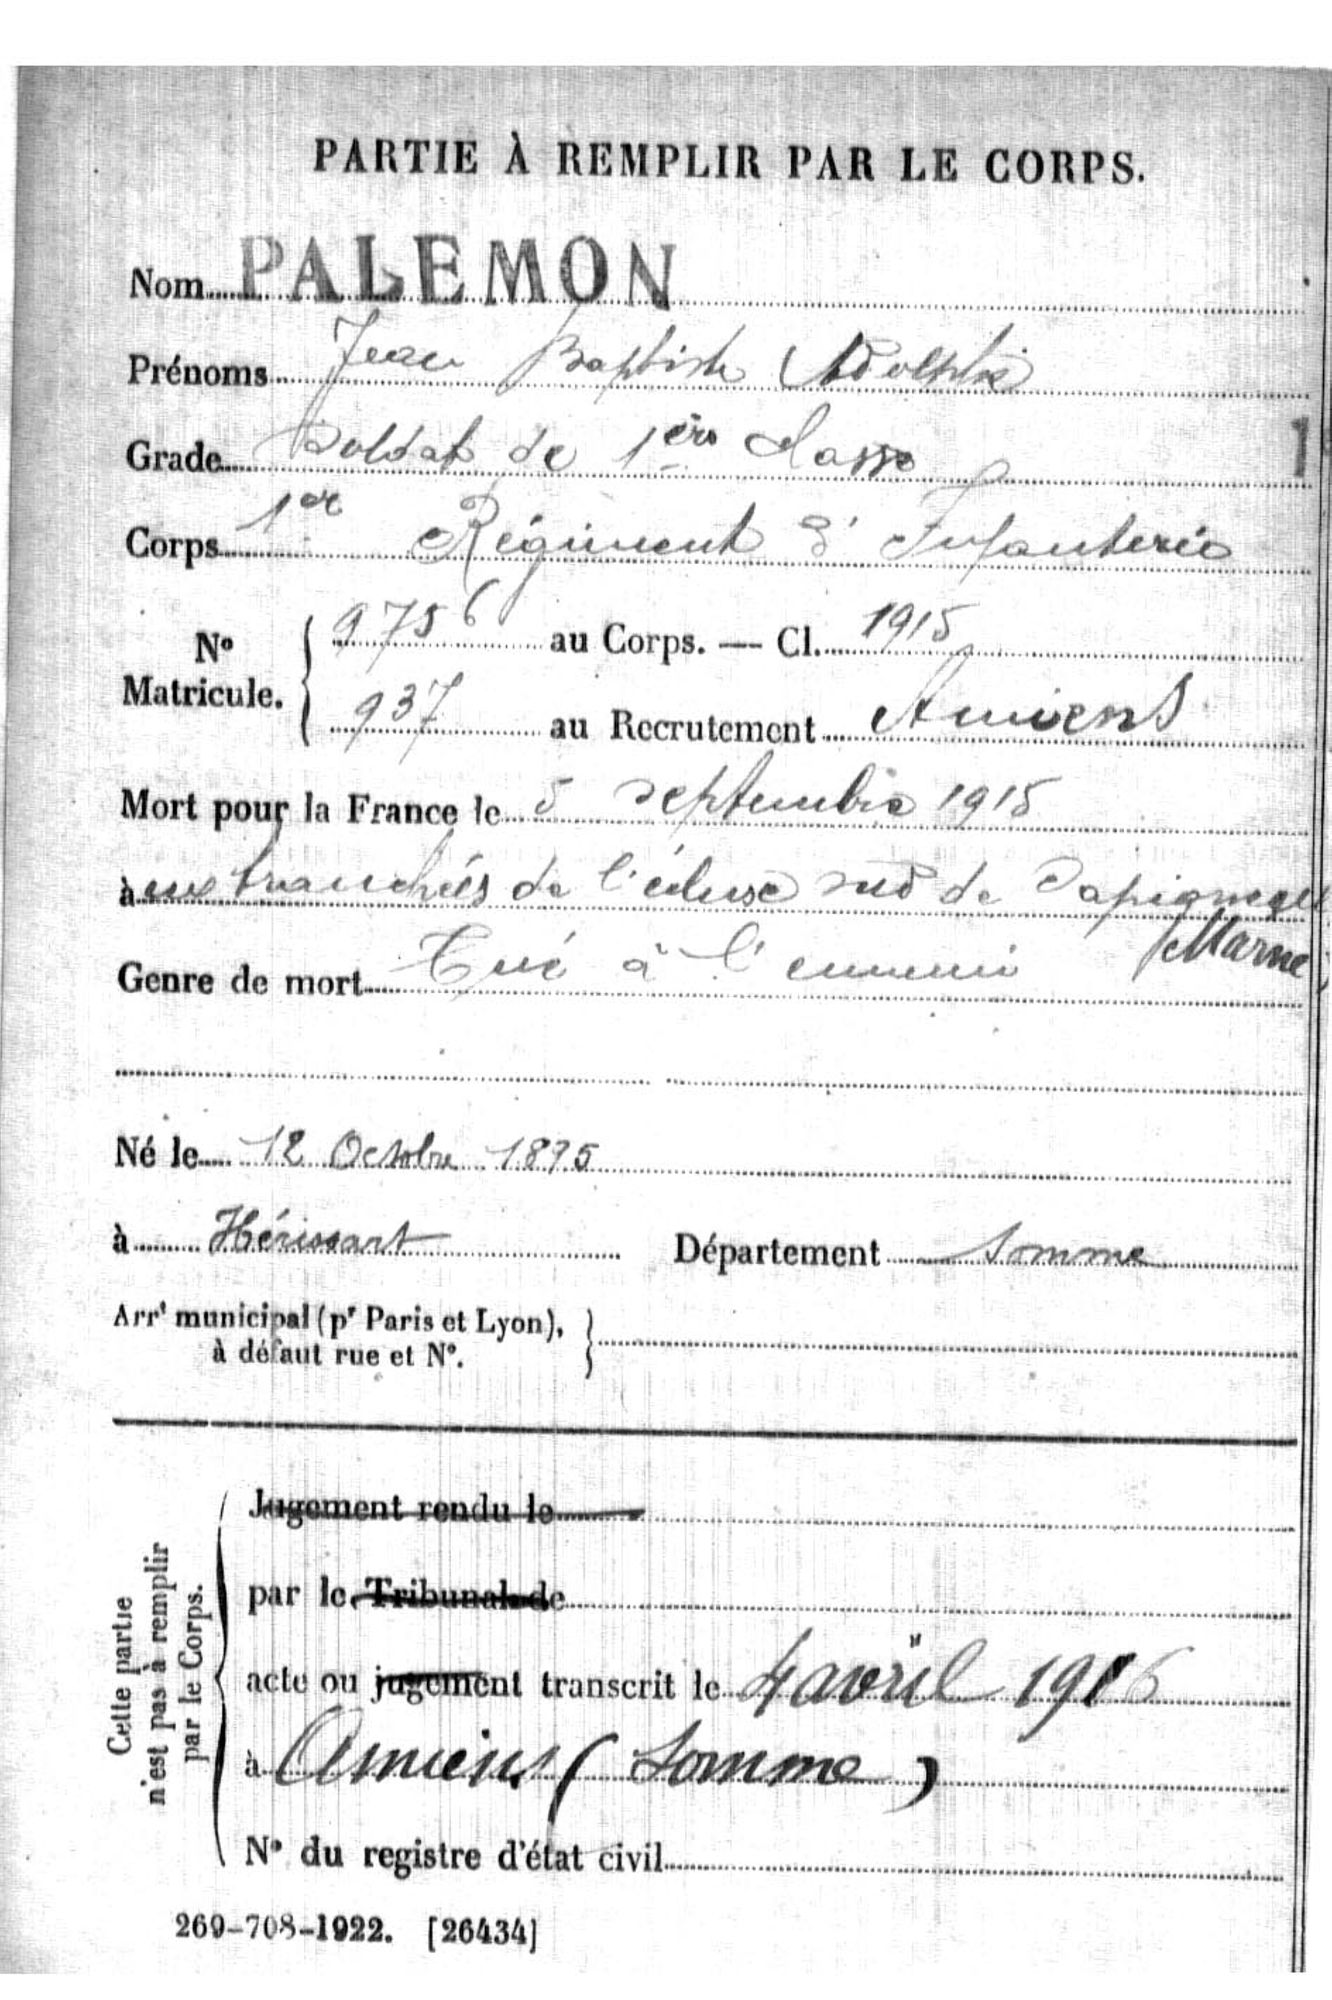 PARTIE À REMPLIR PAR LE CORPS.
Nom PALEMON
Prénoms Jean Baptiste Adolphe
Grade Soldat de 1ère Classe
1
Corps 1er Régiment d'Infanterie
No Matricule. { 9756 au Corps. — Cl. 1915
937 au Recrutement Amiens
Mort pour la France le 5 septembre 1915
à aux tranchées de l'écluse sud de Sapigneul
(Marne)
Genre de mort Tué à l'ennemi
Né le 12 Octobre 1895
à Hérissart Département Somme
Arrt municipal (pr Paris et Lyon), }
à défaut rue et N°.
Cette partie
n'est pas à remplir
par le Corps.
Jugement rendu le
par le Tribunal de
acte ou jugement transcrit le 4 avril 1916
à Amiens (Somme)
N° du registre d'état civil
269-708-1922. [26434]